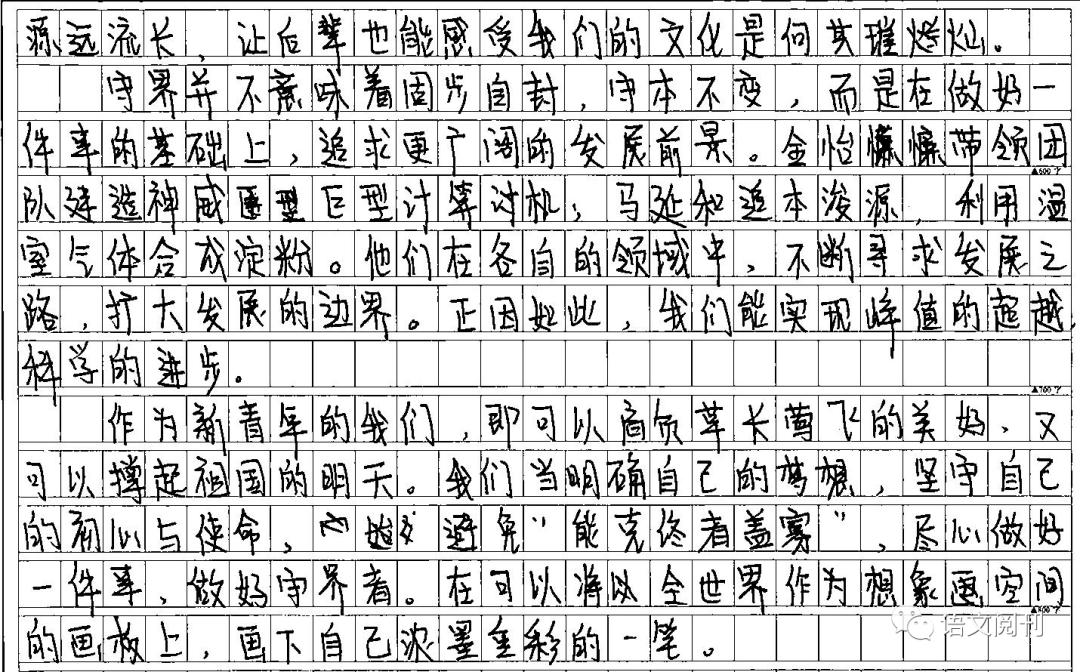 源远流长，让后辈也能感受我们的文化是何其璀烂灿。
守界并不意味着固步自封，守本不变，而是在做好一
件事的基础上，追求更广阔的发展前景。金怡濂濂带领团
▲600字
队建造神威巨型计算讨机；马延和追本浚源，利用温
室气体合成淀粉。他们在各自的领域中，不断寻求发展之
路，扩大发展的边界。正因如此，我们能实现峰值的超越，
科学的进步。
▲700字
作为新青年的我们，即可以肩负草长莺飞的美好，又
可以撑起祖国的明天。我们当明确自己的梦想，坚守自己
的初心与使命，避免“能克终者盖寡”，尽心做好
一件事，做好守界者。在可以将以全世界作为想象画空间
▲800字
的画板上，画下自己浓墨重彩的一笔。
语文阅刊